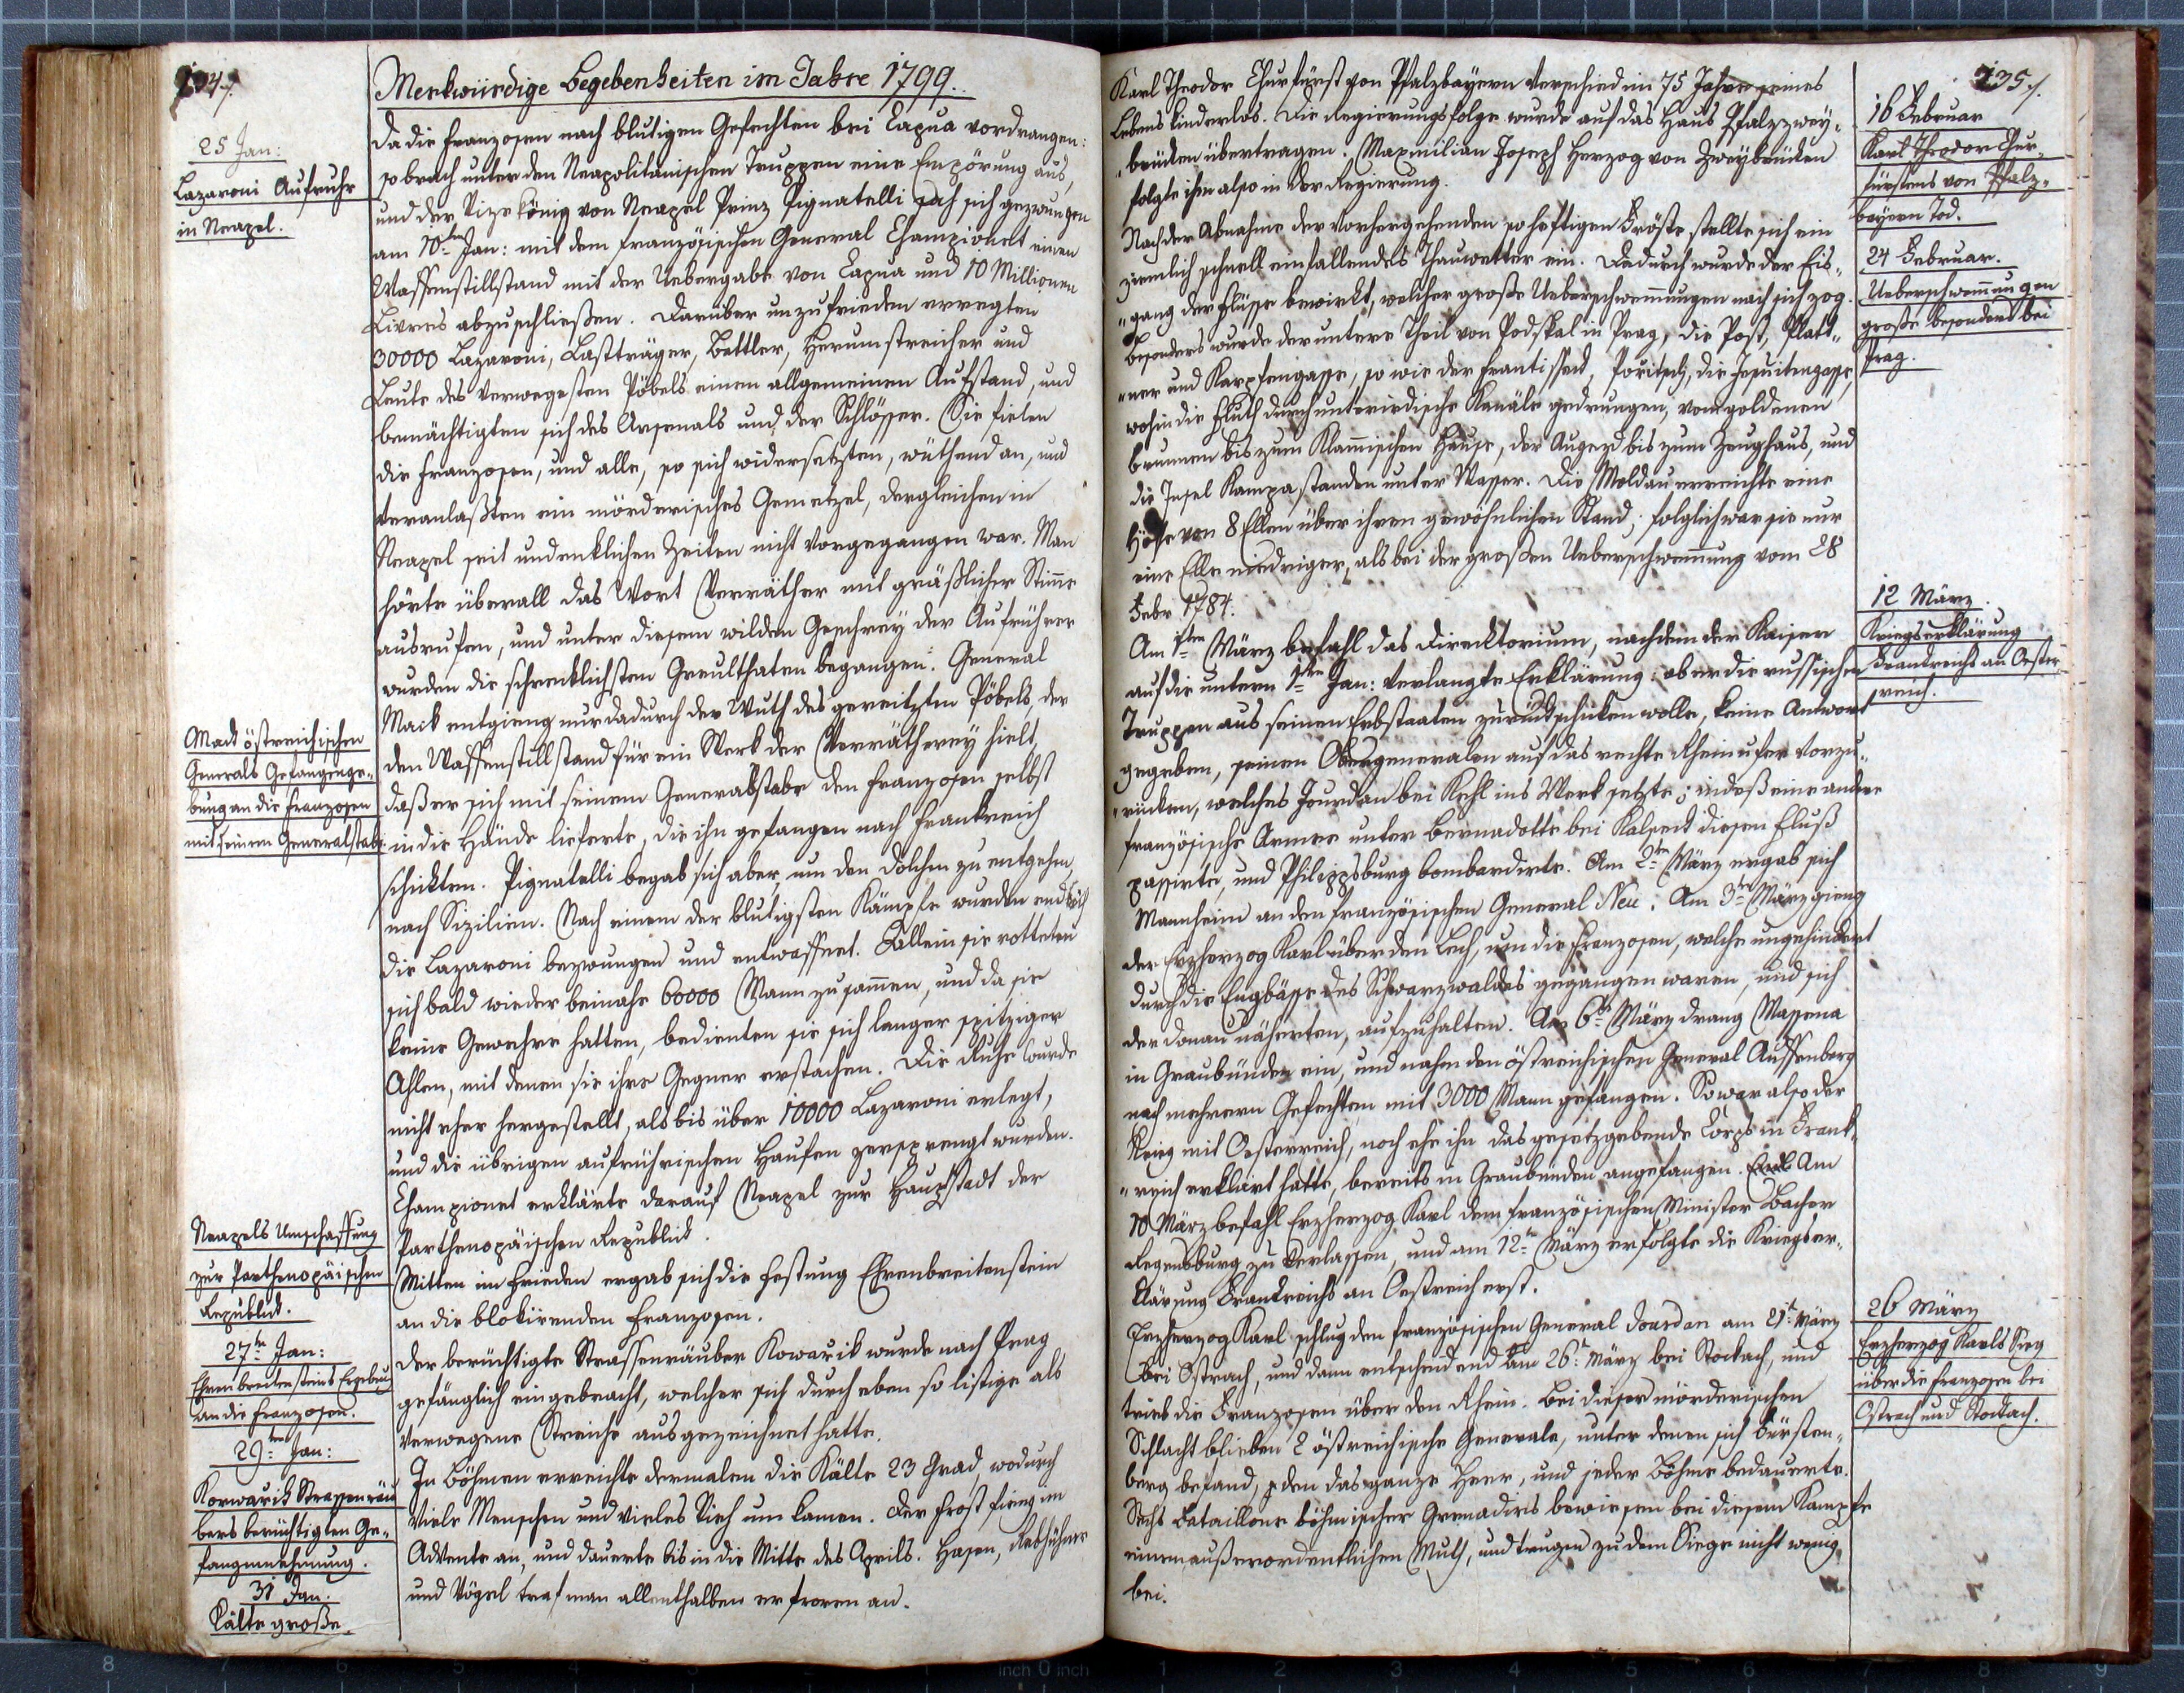 234/.
Merkwürdige Begebenheiten im Jahre 1799.
25 Jan:
Lazaroni Aufruhr
in Neapel.
Da die Franzosen nach blutigen Gefechten bei Capua vordrangen:
so brach unter den Neapolitanischen Truppen eine Empörung aus,
und der Vizekönig von Neapel Prinz Pignatelli sah sich gezwungen
am 10ten Jan: mit dem französischen General Championet einen
Waffenstillstand mit der Uebergabe von Capua und 10 Millionen
Livres abzuschließen. Darüber unzufrieden erregten
30000 Lazaroni, Lastträger, Bettler, Herumstreicher und
Leute des verwegesten Pöbels einen allgemeinen Aufstand, und
bemächtigten sich des Arsenals und der Schlösser. Sie fielen
die Franzosen, und alle, so sich widersetzten, wüthend an, und
veranlaßten ein mörderisches Gemetzel, dergleichen in
Neapel seit undenklichen Zeiten nicht vorgegangen war. Man
hörte überall das Wort Verräther mit gräßlicher Stim̅e
ausrufen, und unter diesem wilden Geschrey der Aufrührer
wurden die schrecklichsten Greulthaten begangen. General
Mack entgieng nur dadurch der Wuth des gereitzten Pöbels, der
den Waffenstillstand für ein Werk der Verrätherey hielt,
daß er sich mit seinem Generalstabe den Franzosen selbst
in die Hände lieferte, die ihn gefangen nach Frankreich
schickten. Pignatelli begab sich aber, um den Dolchen zu entgehen,
nach Sizilien. Nach einem der blutigsten Kämpfe wurden endlich
die Lazaroni bezwungen und entwaffnet. Allein sie rotteten
sich bald wieder beinahe 60000 Mann zusam̅en, und da sie
keine Gewehre hatten, bedienten sie sich langer spitziger
Ahlen, mit denen sie ihre Gegner erstachen. Die Ruhe wurde
nicht eher hergestellt, als bis über 10000 Lazaroni erlegt,
und die übrigen aufrührischen Haufen zersprengt wurden.
Championet erklärte darauf Neapel zur Hauptstadt der
Parthenopäischen Republick.
Mack östreichischen
Generals Gefangenge-
bung an die Franzosen
mit seinem Generalstabe
Neapels Umschaffung
zur Parthenopäischen
Republick.
27ten Jan:
Ehrenbreitensteins Ergebung
an die Franzosen.
Mitten im Frieden ergab sich die Festung Ehrenbreitenstein
an die blokirenden Franzosen.
29ten Jan:
Kowarik Strassenräu
bers berüchtigten Ge-
fangennehmung.
Der berüchtigte Strassenräuber Kowarik wurde nach Prag
gefänglich eingebracht, welcher sich durch eben so listige als
verwegene Streiche ausgezeichnet hatte.
31 Jan.
Kälte große.
In Böhmen erreichte dermalen die Kälte 23 Grad, wodurch
viele Menschen und vieles Vieh um kamen. Der Frost fieng im
Advente an, und dauerte bis in die Mitte des Aprils. Hasen, Rebhühner
und Vögel traf man allenthalben erfroren an.
235/.
16 Februar
Karl Theodor Chur-
fürstens von Pfalz-
bayern Tod.
Karl Theodor Churfürst von Pfalzbayern verschied im 75 Jahre seines
Lebens kinderlos. Die Regierungsfolge wurde auf das Haus Pfalzzwey-
"brücken übertragen. Maxmilian Joseph Herzog von Zweybrücken
folgte ihm also in der Regierung.
24 Februar.
Ueberschwem̅ungen
große besonders bei
Prag.
Nach der Abnahme der vorhergehenden so heftigen Fröste stellte sich ein
ziemlich schnell einfallendes Thauwetter ein. Dadurch wurde der Eis-
"gang der Flüsse bewirkt, welcher große Ueberschwem̅ungen nach sich zog.
Besonders wurde der untere Theil von Podskal in Prag, die Post, Platt-
"ner und Karpfengasse, so wie der Frantisseck, Poritsch, die Jesuitengasse,
wohin die Fluth durch unterirdische Kanäle gedrungen, vom goldenen
Brunnen bis zum Klam̅ischen Hause, der Augezd bis zum Zeughaus, und
die Insel Kampa standen unter Wasser. Die Moldau erreichte eine
Höhe von 8 Ellen über ihren gewöhnlichen Stand; folglich war sie nur
eine Elle niedriger, als bei der großen Ueberschwem̅ung vom 28
Febr 1784.
12 März.
Kriegserklärung
Frankreichs an Oester-
reich.
Am 1ten März befahl das Direcktorium, nachdem der Kaiser
auf die unterm 1ten Jan: verlangte Erklärung: ob er die russischen
Truppen aus seinen Erbstaaten zurückschicken wolle, keine Antwort
gegeben, seinen Obergeneralen auf das rechte Rheinufer vorzu-
"rücken, welches Jourdan bei Kehl ins Werk setzte; indeß eine andere
französische Armee unter Bernadotte bei Kalseck diesen Fluß
passirte, und Philippsburg bombardirte. Am 2ten März ergab sich
Mannheim an den französischen General Neu. Am 3ten März gieng
der Erzherzog Karl über den Lech, um die Franzosen, welche ungehindert
durch die Engbässe des Schwarzwaldes gegangen waren, und sich
der Donau näherten, aufzuhalten. Am 6ten März drang Massena
in Graubünden ein, und nahm den östreichischen General Auffenberg
nach mehrern Gefechten mit 3000 Mann gefangen. So war also der
Krieg mit Oesterreich, noch ehe ihn das gesetzgebende Corps in Frank-
"reich erklärt hatte, bereits in Graubünden angefangen. Am
10 März befahl Erzherzog Karl dem französischen Minister Bacher
Regensburg zu verlassen, und am 12ten März erfolgte die Kriegser-
klärung Frankreichs an Oestreich erst.
26 März
Erzherzog Karls Sieg
über die Franzosen bei
Ostrach und Stockach.
Erzherzog Karl schlug den französischen General Jourdan am 21t. März
bei Ostrach, und dann entscheidend am 26t. März bei Stockach, und
trieb die Franzosen über den Rhein. Bei dieser mörderischen
Schlacht blieben 2 östreichische Generale, unter denen sich Fürsten-
berg befand, den das ganze Heer, und jeder Böhme bedauerte.
Sechs Bataillone böhmischer Grenadirs bewiesen bei diesem Kampfe
einen außerordentlichen Muth, und trugen zu dem Siege nicht wenig
bei.